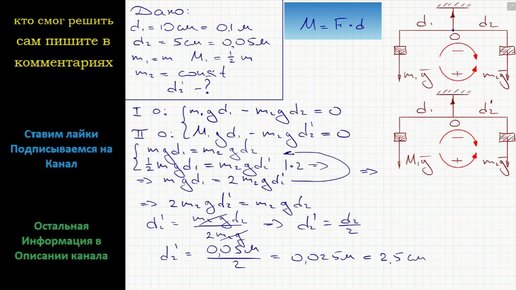 кто смог решить
сам пишите в
комментариях
Ставим лайки
Подписываемся на
Канал
Остальная
Информация в
Описании канала
Дано:
d₁ = 10см = 0,1м
d₂ = 5см = 0,05м
m₁ = m M₁ = ½ m
m₂ = const
d₂' - ?
M = F · d
I 0: { m₁gd₁ - m₂gd₂ = 0
II 0: { M₁gd₁ - m₂gd₂' = 0
{ mgd₁ = m₂gd₂
{ ½mgd₁ = m₂gd₂' |·2 => =>
=> mgd₁ = 2m₂gd₂'
=> 2m₂gd₂' = m₂gd₂
d₂' = m₂gd₂ / 2m₂g => d₂' = d₂/2
d₂' = 0,05м / 2 = 0,025м = 2,5см
d₁ d₂
0
− +
m₁g m₂g
d₁ d₂'
0
− +
M₁g m₂g